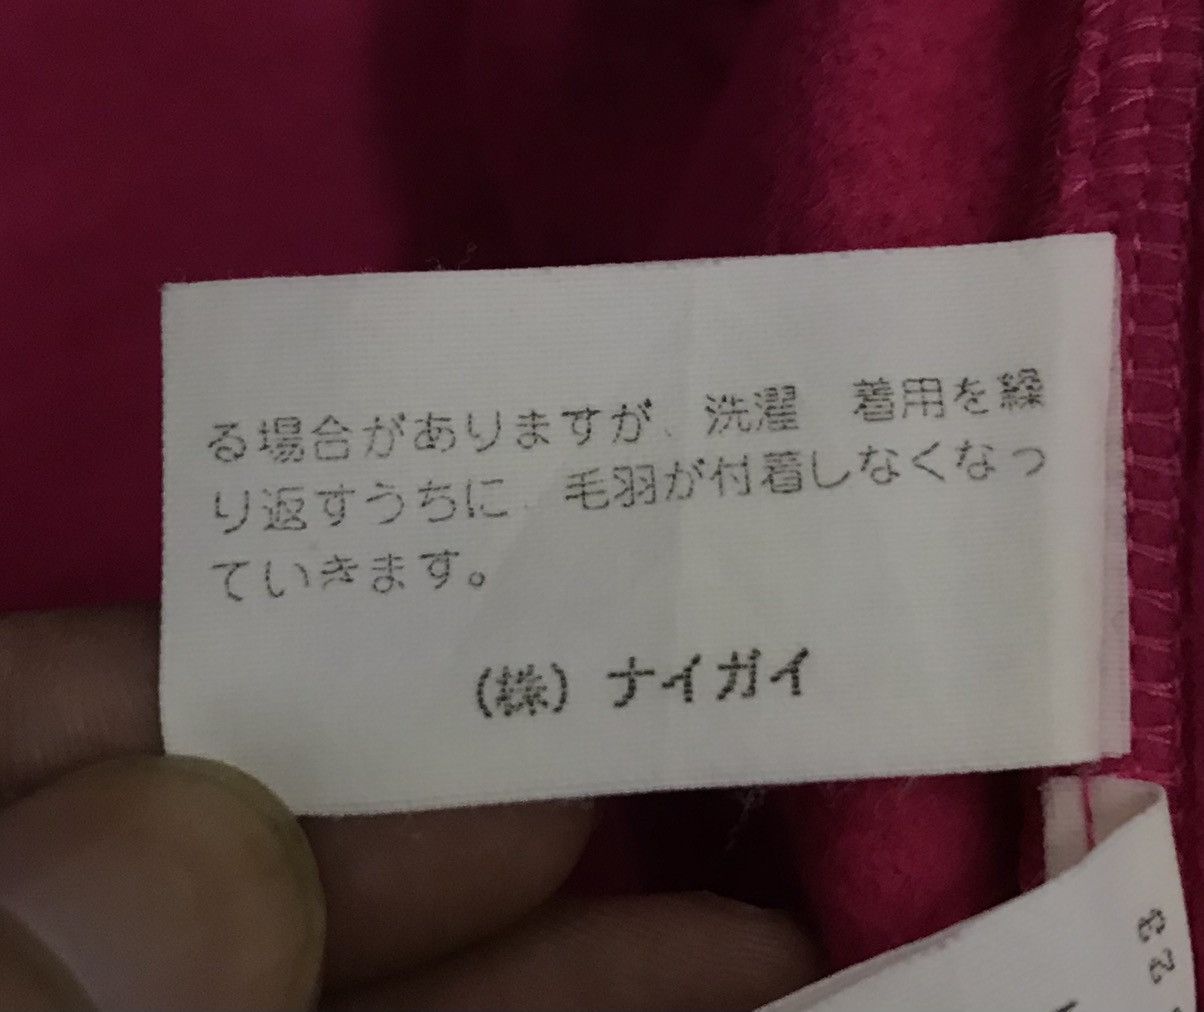 る場合がありますが、洗濯　着用を繰
り返すうちに、毛羽が付着しなくなっ
ていきます。
(株) ナイガイ